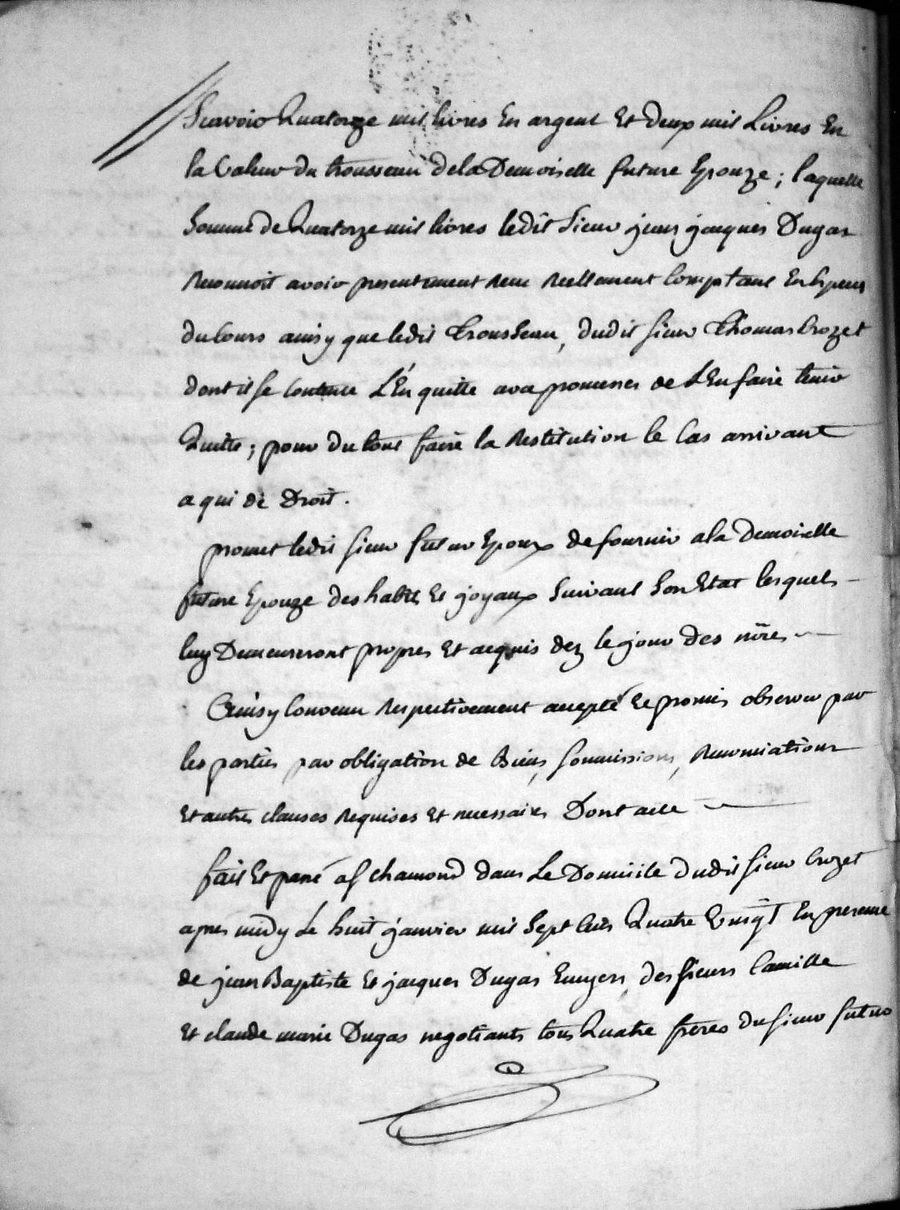 Scavoir Quatorze mil livres En argent Et deux mil Livres En
la Valeur du trousseau dela Demoiselle future Epouze; laquelle
Somme de Quatorze mil livres ledit Sieur jean jacques Dugas
Reconnoit avoir presentement Receu Reellement Comptant En Especes
du Cours ainsy que ledit Trousseau, dudit sieur Thomas Crozet
dont il se Contente L'En quitte avec promesses de L'En faire tenir
Quitte; pour du tout faire la Restitution le Cas arrivant
a qui de Droit.
promet ledit sieur futur Epoux de fournir a la Demoiselle
future Epouze des habits Et joyaux Suivant Son Etat lesquels
luy Demeureront propres Et acquis dez le jour des nôces
Ainsy Convenu Respectivement accepté Et promis observer par
les parties par obligation de Biens, Soumissions, Renonciations
Et autres clauses Requises Et necessaires Dont acte
fait Et passé a St chamond dans Le Domicile dudit sieur Crozet
aprés midy Le huit janvier mil Sept Cents Quatre Vingt En presence
de jean Baptiste Et jacques Dugas Ecuyers, des sieurs Camille
Et claude marie Dugas negotiants tous Quatre fréres du sieur futur